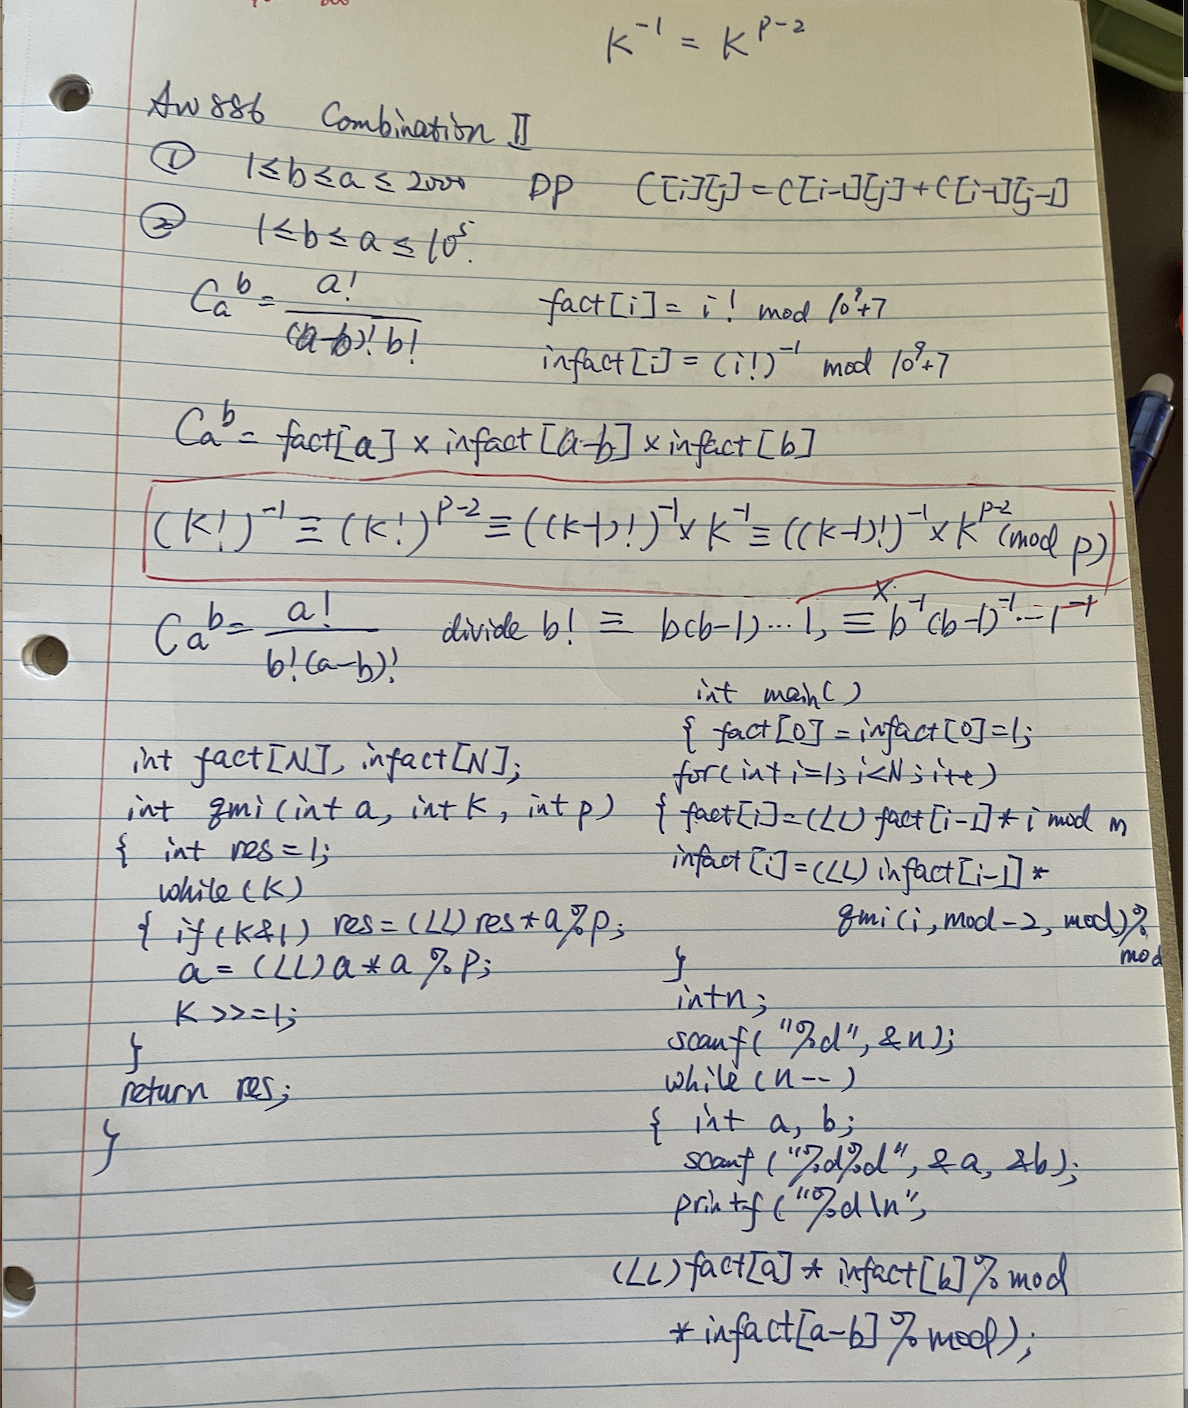 K⁻¹ = K^(P-2)
AW 886 Combination II
① 1≤b≤a≤2000 DP C[i][j]=C[i-1][j]+C[i-1][j-1]
② 1≤b≤a≤10⁵.
Ca^b = a! / (a-b)! b! fact[i] = i! mod 10⁹+7
infact[i] = (i!)⁻¹ mod 10⁹+7
Ca^b = fact[a] × infact[a-b] × infact[b]
(K!)⁻¹ ≡ (K!)^(P-2) ≡ ((K-1)!)⁻¹ × K⁻¹ ≡ ((K-1)!)⁻¹ × K^(P-2) (mod p)
Ca^b = a! / b!(a-b)! divide b! ≡ b(b-1)...1, ≡ x. b⁻¹(b-1)⁻¹...1⁻¹
int fact[N], infact[N];
int qmi(int a, int K, int p)
{ int res=1;
while(K)
{ if(K&1) res=(LL)res*a%p;
a = (LL)a*a%p;
K>>=1;
}
return res;
}
int main()
{ fact[0]=infact[0]=1;
for(int i=1;i<N;i++)
{ fact[i]=(LL)fact[i-1]*i mod m
infact[i]=(LL)infact[i-1]*
qmi(i, mod-2, mod)%
mod
}
int n;
scanf("%d", &n);
while(n--)
{ int a, b;
scanf("%d%d", &a, &b);
printf("%d\n",
(LL)fact[a]*infact[b]%mod
*infact[a-b]%mod);